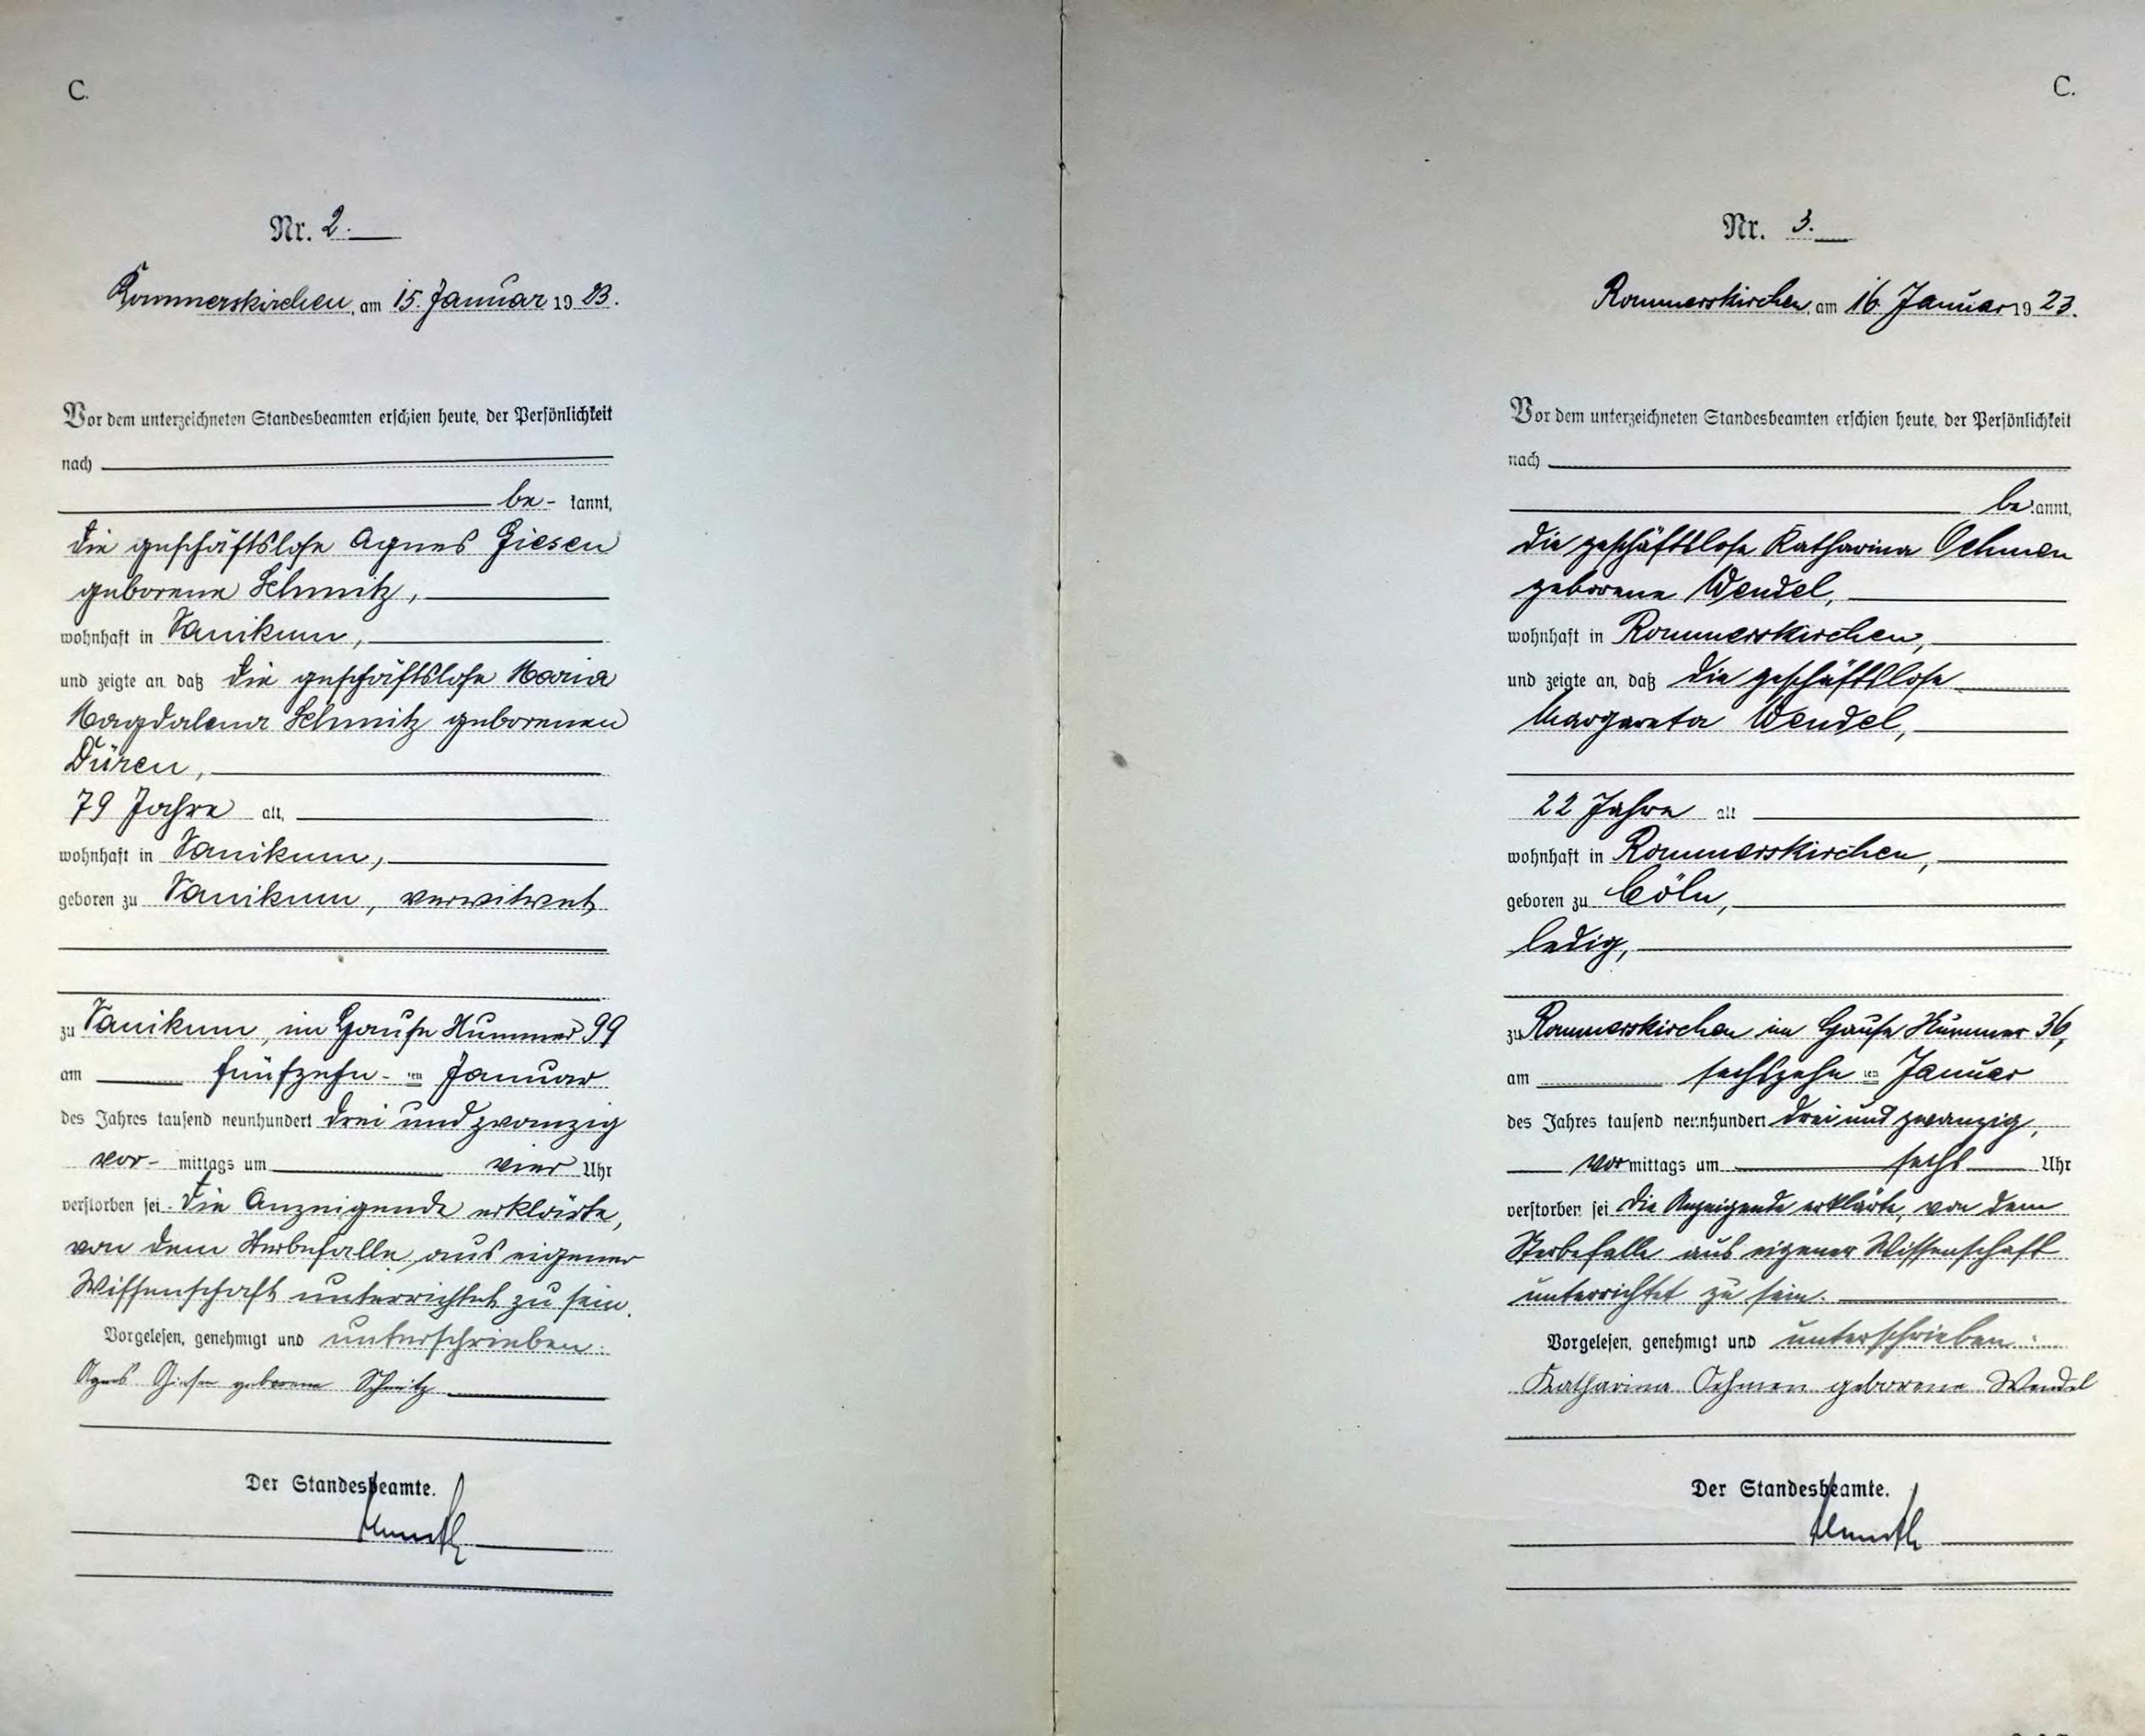 C.
Nr. 2.
Rommerskirchen, am 15. Januar 1923.
Vor dem unterzeichneten Standesbeamten erschien heute, der Persönlichkeit
nach
be- kannt,
die geschäftslose Agnes Giesen
geborene Schmitz,
wohnhaft in Vanikum,
und zeigte an, daß die geschäftslose Maria
Magdalena Schmitz geborenen
Düren,
79 Jahre alt,
wohnhaft in Vanikum,
geboren zu Vanikum, verwitwet
zu Vanikum, im Hause Nummer 99
am fünfzehn- ten Januar
des Jahres tausend neunhundert drei und zwanzig
vor- mittags um vier Uhr
verstorben sei. Die Anzeigende erklärte,
von dem Sterbefalle aus eigener
Wissenschaft unterrichtet zu sein.
Vorgelesen, genehmigt und unterschrieben:
Agnes Giesen geborene Schmitz
Der Standesbeamte.
C.
Nr. 3.
Rommerskirchen, am 16. Januar 1923.
Vor dem unterzeichneten Standesbeamten erschien heute, der Persönlichkeit
nach
bekannt,
die geschäftslose Katharina Oehmen
geborene Wendel,
wohnhaft in Rommerskirchen,
und zeigte an, daß die geschäftslose
Margareta Wendel,
22 Jahre alt
wohnhaft in Rommerskirchen,
geboren zu Cöln,
ledig,
zu Rommerskirchen im Hause Nummer 36,
am sechszehn ten Januar
des Jahres tausend neunhundert drei und zwanzig,
vormittags um sechs Uhr
verstorben sei. Die Anzeigende erklärte, von dem
Sterbefalle aus eigener Wissenschaft
unterrichtet zu sein.
Vorgelesen, genehmigt und unterschrieben:
Katharina Oehmen geborene Wendel
Der Standesbeamte.